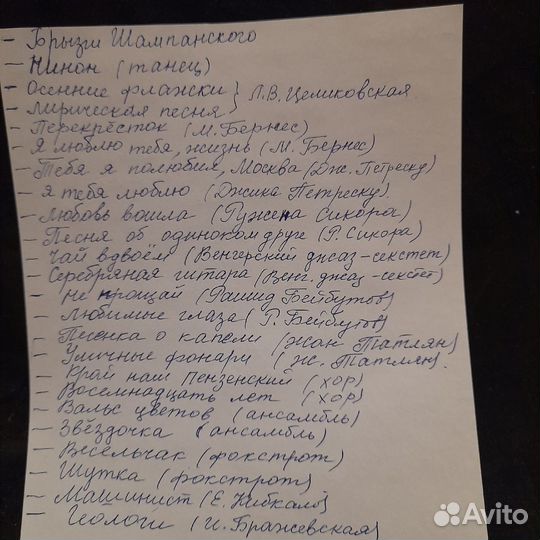 - Брызги Шампанского
- Нинон (танец)
- Осенние флажки } Л.В. Целиковская
- Лирическая песня }
- Перекрёсток (М. Бернес)
- Я люблю тебя, жизнь (М. Бернес)
- Тебя я полюбил, Москва (Дж. Петреску)
- Я тебя люблю (Джика Петреску).
- Любовь вошла (Ружена Сикора)
- Песня об одиноком друге (Р. Сикора)
- Чай вдвоём (Венгерский джаз-секстет)
- Серебряная гитара (Венг. джаз-секстет)
- Не прощай (Рашид Бейбутов)
- Любимые глаза (Р. Бейбутов)
- Песенка о капели (Жан Татлян)
- Уличные фонари (Ж. Татлян).
- Край наш Пензенский (хор)
- Восемнадцать лет (хор)
- Вальс цветов (ансамбль)
- Звёздочка (ансамбль)
- Весельчак (фокстрот)
- Шутка (фокстрот)
- Машинист (Е. Кибкало)
- Геологи (И. Бражевская)
Avito